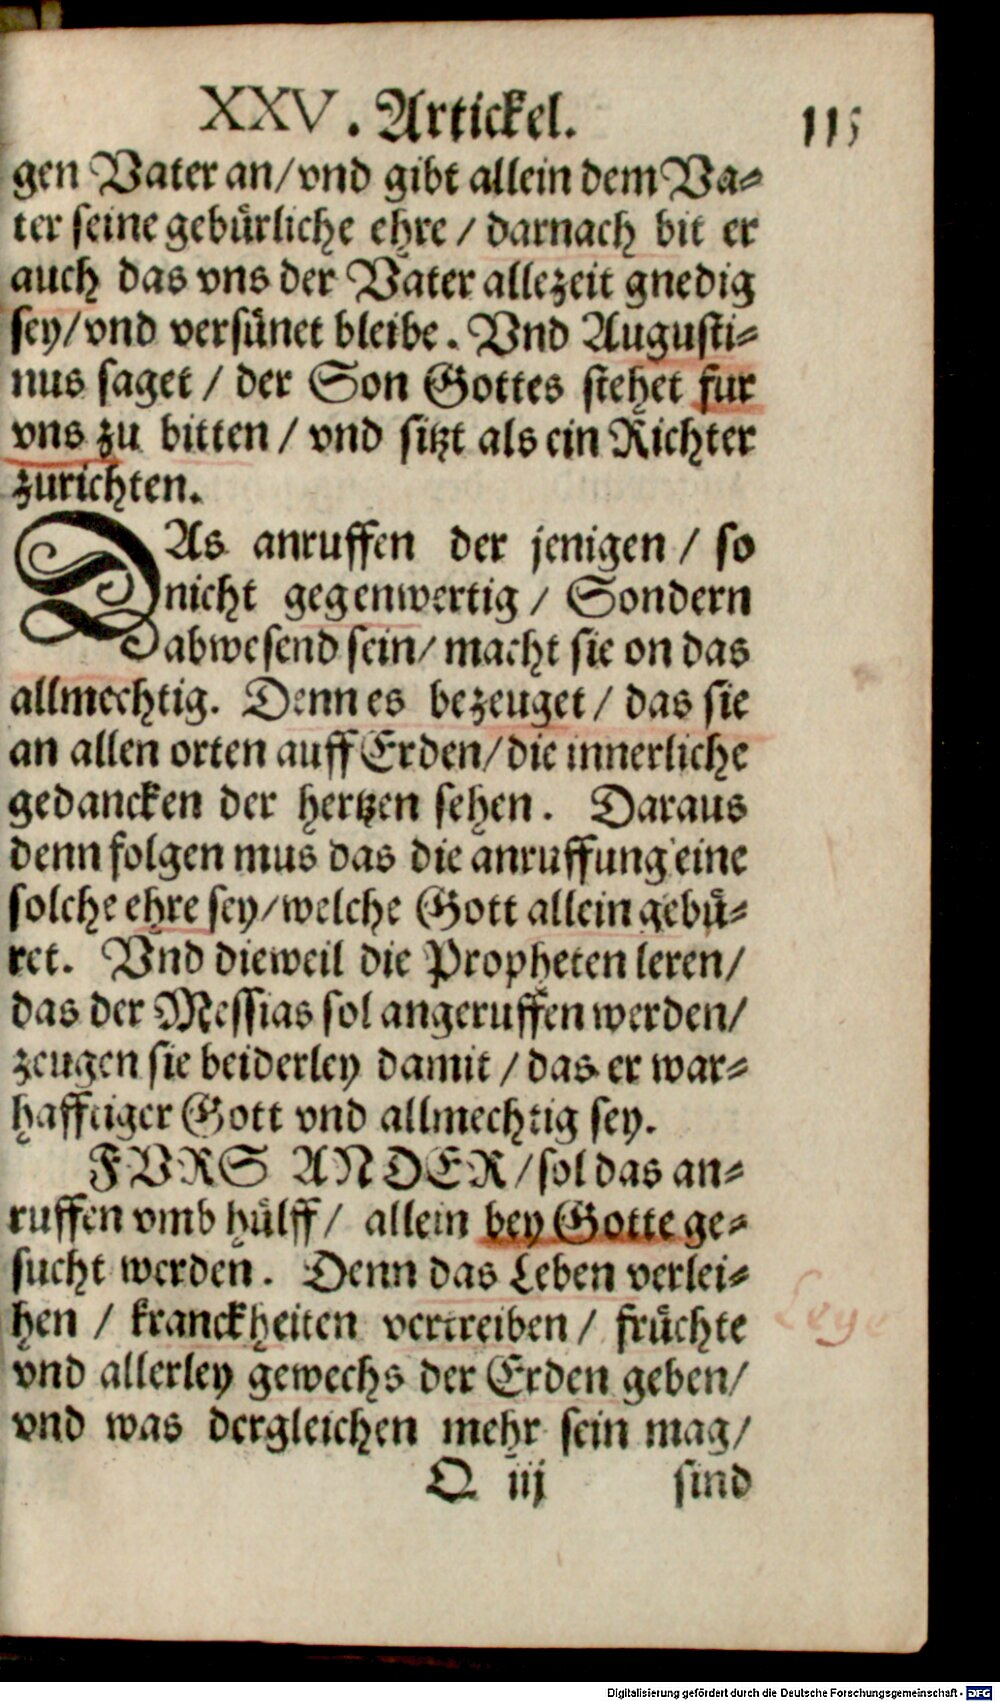 XXV. Artickel. 115
gen Vater an/vnd gibt allein dem Va-
ter seine gebürliche ehre / darnach bit er
auch das vns der Vater allezeit gnedig
sey/vnd versünet bleibe. Vnd Augusti-
nus saget / der Son Gottes stehet fur
vns zu bitten / vnd sitzt als ein Richter
zurichten.
DAs anruffen der jenigen / so
nicht gegenwertig / Sondern
abwesend sein/ macht sie on das
allmechtig. Denn es bezeuget / das sie
an allen orten auff Erden/die innerliche
gedancken der hertzen sehen. Daraus
denn folgen mus das die anruffung eine
solche ehre sey/welche Gott allein gebü-
ret. Vnd dieweil die Propheten leren/
das der Messias sol angeruffen werden/
zeugen sie beiderley damit / das er war-
hafftiger Gott vnd allmechtig sey.
FVRS ANDER/sol das an-
ruffen vmb hülff/ allein bey Gotte ge-
sucht werden. Denn das Leben verlei-
hen / kranckheiten vertreiben / früchte
vnd allerley gewechs der Erden geben/
vnd was dergleichen mehr sein mag/
Q iij sind
Digitalisierung gefördert durch die Deutsche Forschungsgemeinschaft - DFG